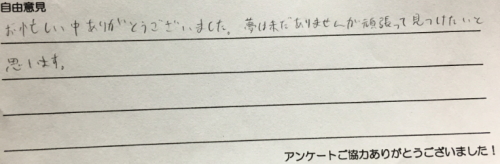 自由意見
お忙しい中ありがとうございました。夢は未だありませんが頑張って見つけたいと
思います。
アンケートご協力ありがとうございました！